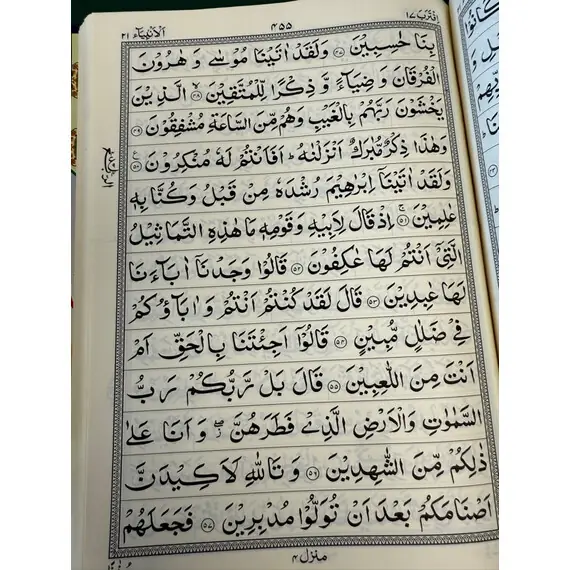 اقترب ١٧
٤٥٥
الانبيآء ٢١
بِنَا حٰسِبِيْنَ ﴿٤٧﴾ وَلَقَدْ اٰتَيْنَا مُوْسٰى وَ هٰرُوْنَ
الْفُرْقَانَ وَ ضِيَآءً وَّ ذِكْرًا لِّلْمُتَّقِيْنَ ﴿٤٨﴾ الَّذِيْنَ
يَخْشَوْنَ رَبَّهُمْ بِالْغَيْبِ وَهُمْ مِّنَ السَّاعَةِ مُشْفِقُوْنَ ﴿٤٩﴾
وَهٰذَا ذِكْرٌ مُّبٰرَكٌ اَنْزَلْنٰهُ ؕ اَفَاَنْتُمْ لَهٗ مُنْكِرُوْنَ ﴿٥٠﴾
وَلَقَدْ اٰتَيْنَاۤ اِبْرٰهِيْمَ رُشْدَهٗ مِنْ قَبْلُ وَكُنَّا بِهٖ
عٰلِمِيْنَ ﴿٥١﴾ اِذْ قَالَ لِاَبِيْهِ وَقَوْمِهٖ مَا هٰذِهِ التَّمَاثِيْلُ
الَّتِيْۤ اَنْتُمْ لَهَا عٰكِفُوْنَ ﴿٥٢﴾ قَالُوْا وَجَدْنَاۤ اٰبَآءَنَا
لَهَا عٰبِدِيْنَ ﴿٥٣﴾ قَالَ لَقَدْ كُنْتُمْ اَنْتُمْ وَ اٰبَآؤُكُمْ
فِيْ ضَلٰلٍ مُّبِيْنٍ ﴿٥٤﴾ قَالُوْۤا اَجِئْتَنَا بِالْحَقِّ اَمْ
اَنْتَ مِنَ اللّٰعِبِيْنَ ﴿٥٥﴾ قَالَ بَلْ رَّبُّكُمْ رَبُّ
السَّمٰوٰتِ وَالْاَرْضِ الَّذِيْ فَطَرَهُنَّ ۖ وَ اَنَا عَلٰى
ذٰلِكُمْ مِّنَ الشّٰهِدِيْنَ ﴿٥٦﴾ وَ تَاللّٰهِ لَاَكِيْدَنَّ
اَصْنَامَكُمْ بَعْدَ اَنْ تُوَلُّوْا مُدْبِرِيْنَ ﴿٥٧﴾ فَجَعَلَهُمْ
منزل ٤